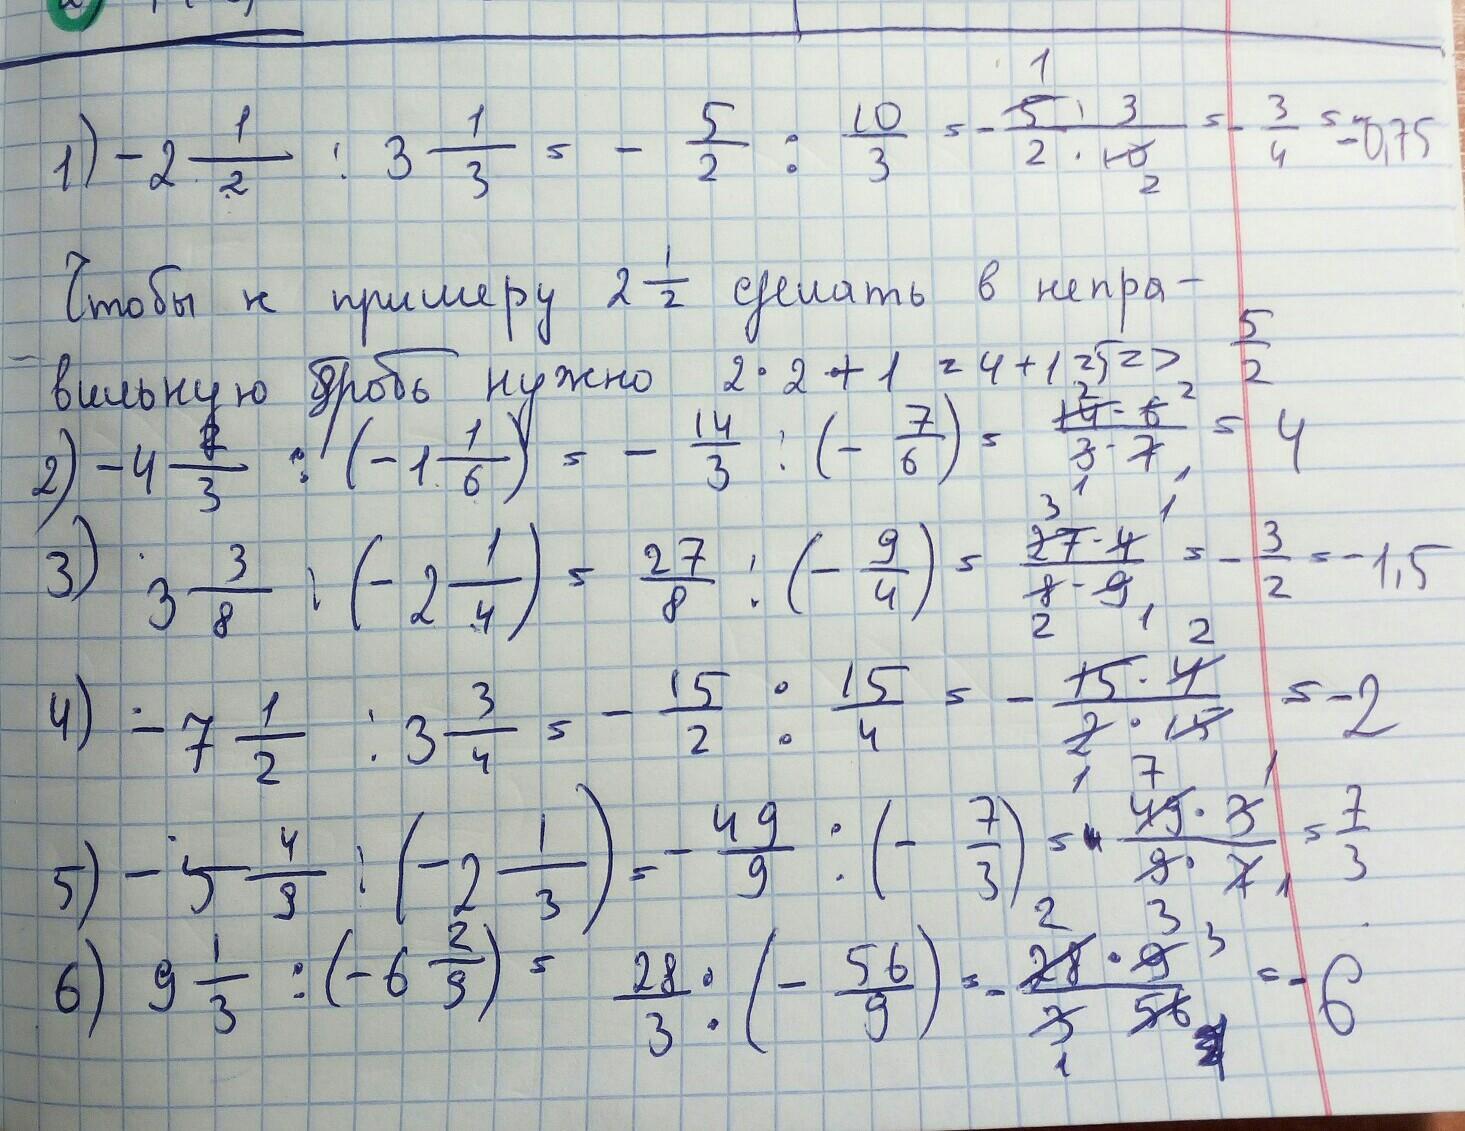 1) -2 1/2 : 3 1/3 = - 5/2 : 10/3 = - 5 · 3 / 2 · 10 = - 3/4 = -0,75
Чтобы к примеру 2 1/2 сделать в непра-
вильную дробь нужно 2·2+1 = 4+1=5 => 5/2
2) -4 2/3 : (-1 1/6) = - 14/3 : (- 7/6) = 14 · 6 / 3 · 7 = 4
3) 3 3/8 : (-2 1/4) = 27/8 : (- 9/4) = 27 · 4 / 8 · 9 = - 3/2 = -1,5
4) -7 1/2 : 3 3/4 = - 15/2 : 15/4 = - 15 · 4 / 2 · 15 = -2
5) -5 4/9 : (-2 1/3) = - 49/9 : (- 7/3) = 49 · 3 / 9 · 7 = 7/3
6) 9 1/3 : (-6 2/9) = 28/3 : (- 56/9) = - 28 · 9 / 3 56 = -6